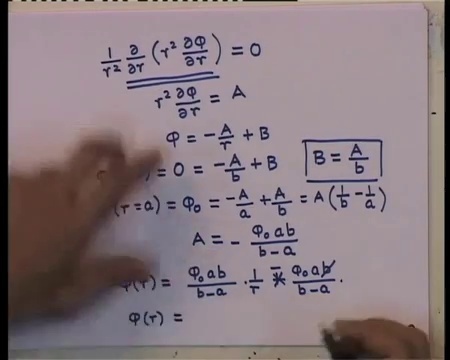 1/r² ∂/∂r (r² ∂φ/∂r) = 0
r² ∂φ/∂r = A
φ = -A/r + B
) = 0 = -A/b + B
B = A/b
(r=a) = φ₀ = -A/a + A/b = A(1/b - 1/a)
A = - φ₀ab/b-a
φ(r) = φ₀ab/b-a · 1/r - φ₀ab/b-a .
φ(r) =